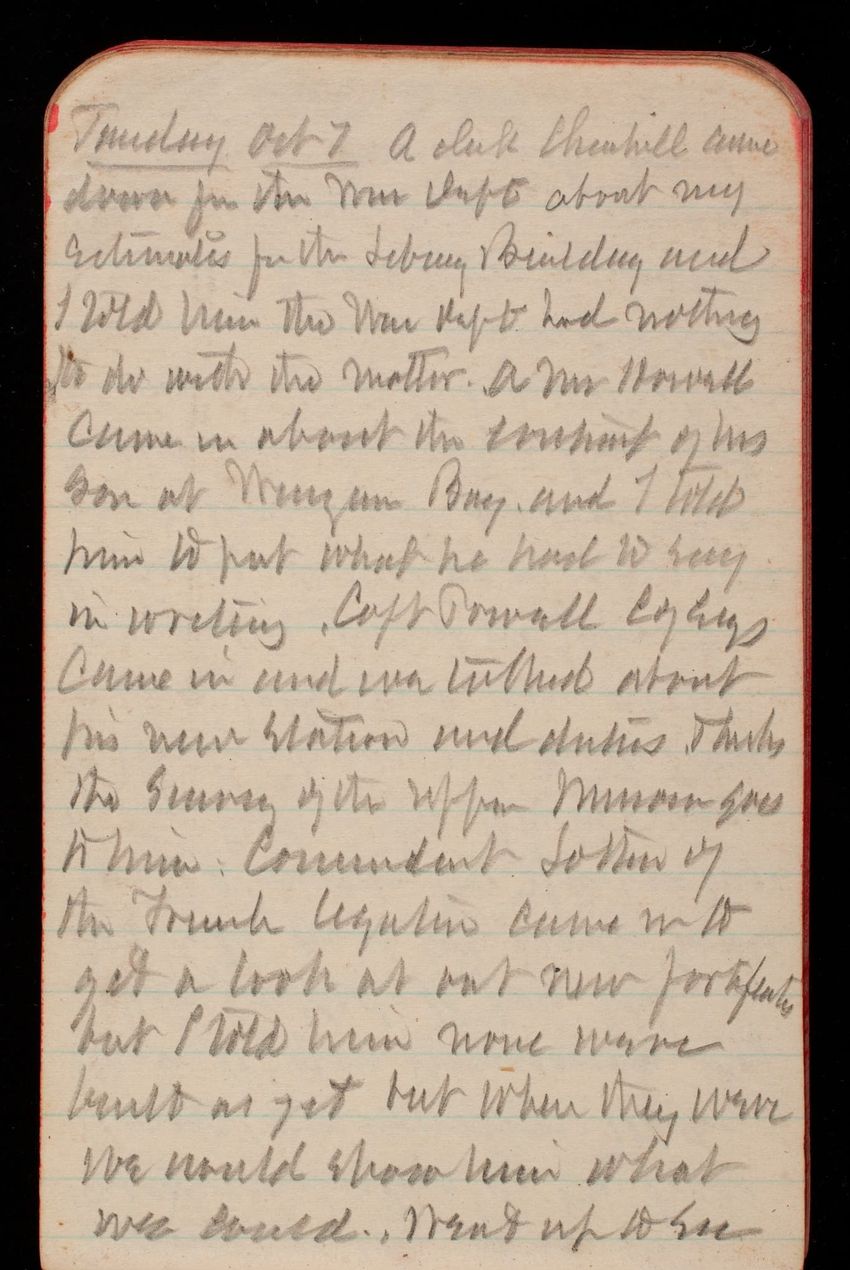 Tuesday Oct 7 A clerk Churchill came
down from the War Dept about my
Estimates for the Library Building and
I told him the War Dept had nothing
to do with the matter. A Mr Howell
came in about the contract of his
son at Bay. and I told
him to put what he had to say
in writing. Capt Powell Engs
came in and we talked about
his new station and duties. Thinks
the Survey of the upper Missouri goes
to him. of
the French legation came in to
get a look at out new fortifications
but I told him none were
built as yet but when they were
we would show him what
we could. Went up to see